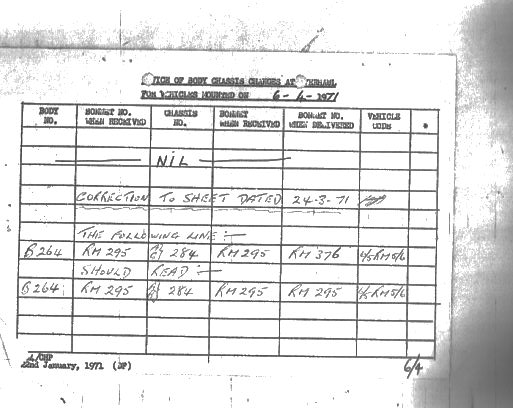 OF BODY CHASSIS CHANGES AT
FOR VEHICLES MOUNTED ON 6-4-1971
BODY NO. BONNET NO. WHEN RECEIVED CHASSIS NO. BONNET WHEN RECEIVED BONNET NO. WHEN DELIVERED VEHICLE CODE *
NIL
CORRECTION TO SHEET DATED 24-3-71
THE FOLLOWING LINE:-
B264 RM295 284 RM295 RM376 RM5/6
SHOULD READ:-
B264 RM295 284 RM295 RM295 RM5/6
22nd January, 1971 (DP)
6/4